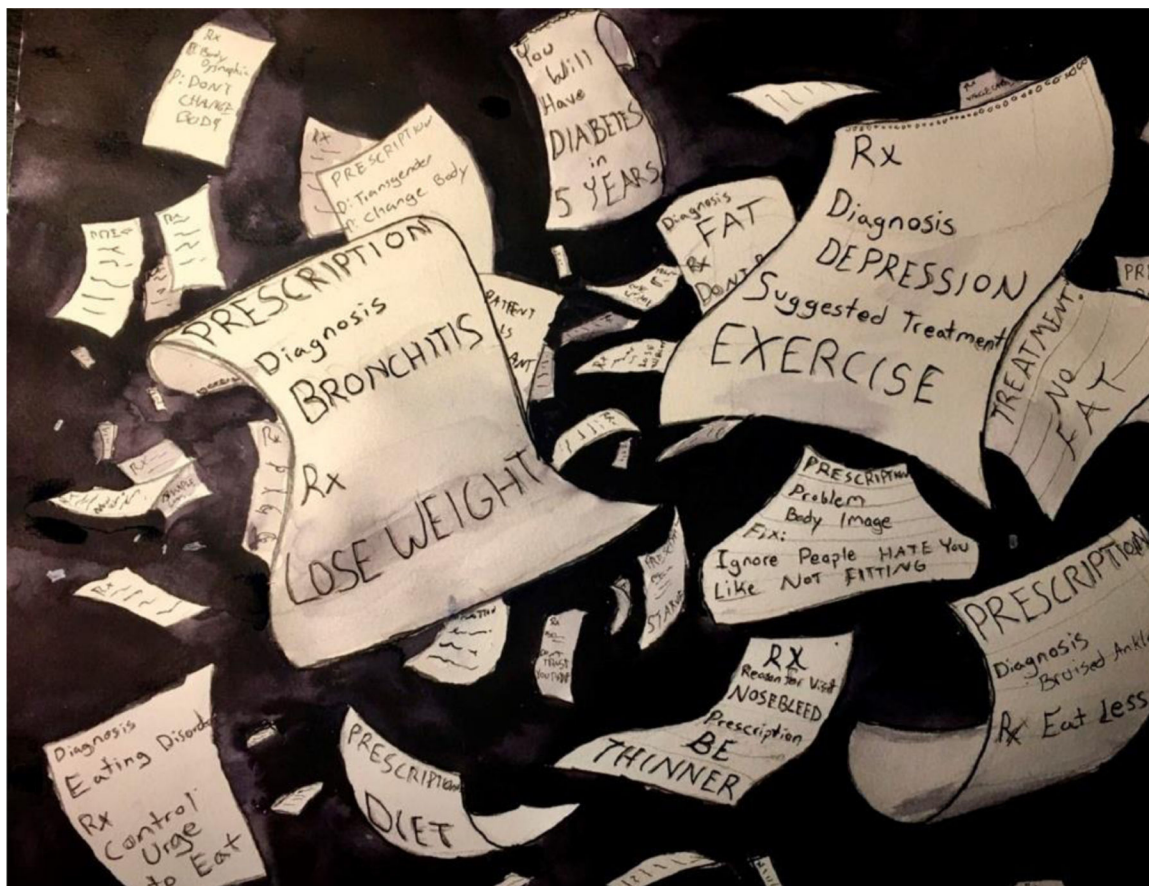 Rx
Body
P: DON'T
CHANGE
BODY
Rx
PRESCRIPTION
D: Transgender
P: Change Body
You
Will
Have
DIABETES
in
5 YEARS
Diagnosis
FAT
Rx
DON'T
Rx
Diagnosis
DEPRESSION
Suggested Treatment
EXERCISE
TREATMENT:
NO
FAT
PRESCRIPTION
Diagnosis
BRONCHITIS
Rx
LOSE WEIGHT
Rx
Rx
PRESCRIPTION
Problem
Body Image
Fix:
Ignore People HATE YOU
Like NOT FITTING
STARVE
PRESCRIPTION
Diagnosis
Bruised Ankle
Rx Eat Less
Rx
Reason for Visit
NOSEBLEED
Prescription
BE
THINNER
Rx
DON'T
TRUST
Rx
PRESCRIPTION
DIET
Diagnosis
Eating Disorder
Rx
Control
Urge
to Eat